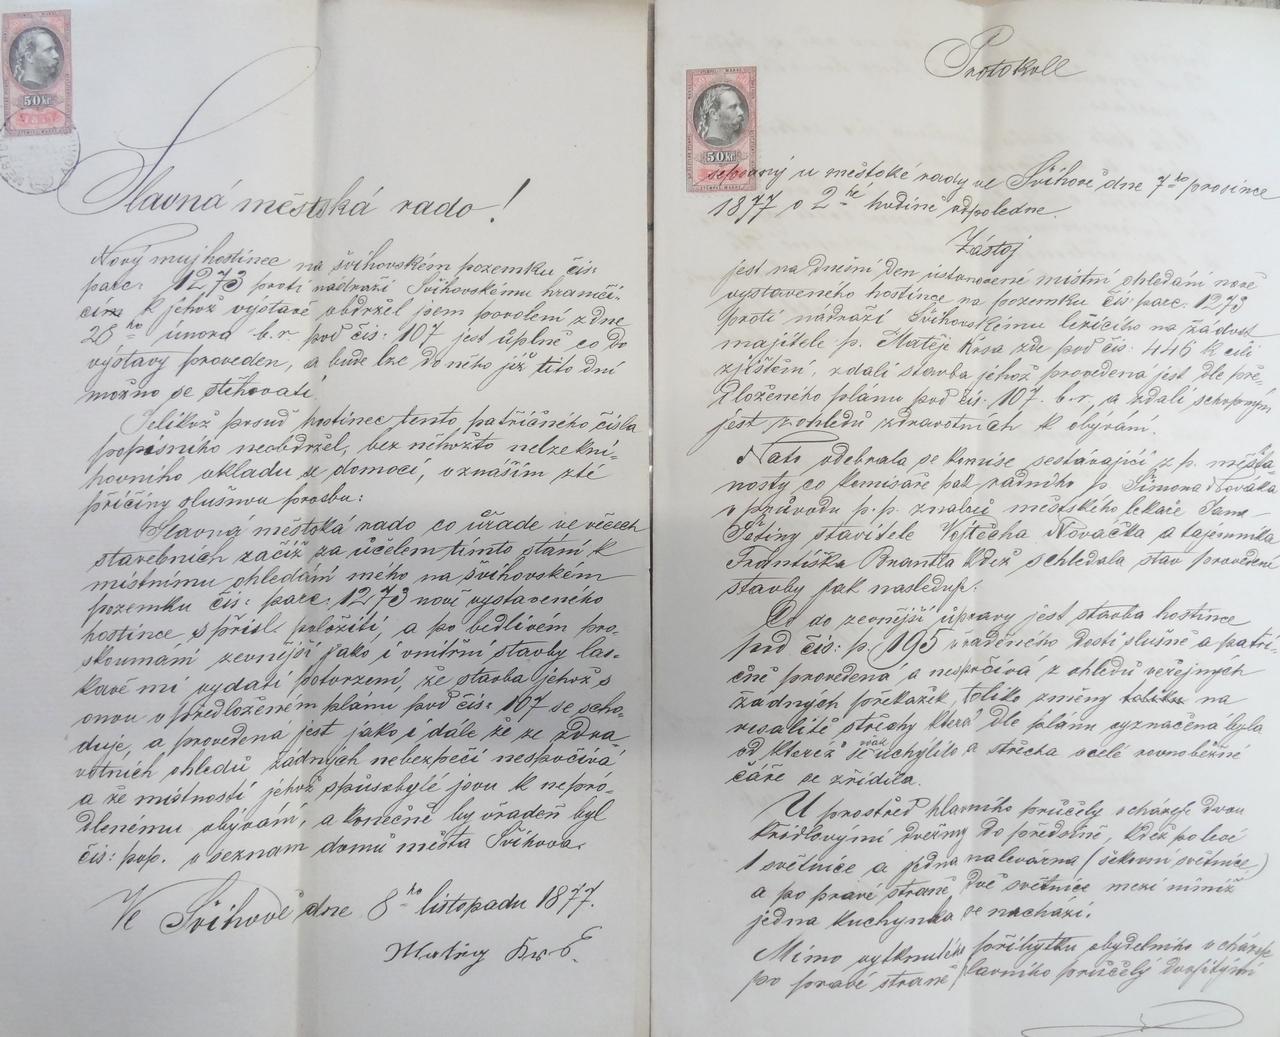 50 Kr.
Slavná městská rado!
Nový můj hostinec na švihovském pozemku čís:
parc: 1273 proti nadraží Švihovskému hraničí-
cím k jehož výstavě obdržel jsem povolení z dne
28ho února b. r. pod čís: 107 jest úplně co do
výstavy proveden, a bude lze do něho již tito dni
možno se stěhovati.
Jelikož posud hostinec tento, patřičného čísla
popisného neobdržel, bez něhožto nelze kni-
hovního vkladu se domoci, vznaším z té
příčiny slušnou prosbu:
Slavná městská rado co úřade ve věcech
stavebních začíž za účelem tímto stání k
místnímu ohledání mého na švihovském
pozemku čís: parc: 1273 nově vystaveného
hostince, s přísl. položiti, a po bedlivém pro-
skoumání zevnější jako i vnitřní stavby las-
kavě mi vydati potvrzení, že stavba jehož s
onou v předloženém plánu pod čís: 107 se scho-
duje, a provedena jest jako i dále že ze zdra-
votních ohledů žádných nebezpečí nespočívá
a že místnosti jehož spůsobylé jsou k nepró-
dlenému obývání, a konečně by vřaděn byl
čís: pop. v seznam domů města Švihova.
Ve Švihově dne 8ho listopadu 1877.
Matěj Krs
50 Kr.
Protokoll
sepsaný u městské rady ve Švihově dne 7ho prosince
1877 o 2hé hodině odpoledne.
Zástoj
jest na dnešní den ustanovené místní ohledání nově
vystaveného hostince na pozemku čís. parc. 1273
proti nádraží Švihovskému ležícího na žádost
majitele p. Matěje Krsa zde pod čís: 446 k cíli
zjištění, zdali stavba jehož provedena jest dle pře-
dloženého plánu pod čís. 107. b. r., a zdali schopným
jest z ohledů zdravotních k obývám.
Nato odebrala se komise sestávající z p. měšťa-
nosty co komisaře pak radního p. Šimona Nováka
v průvodu p. p. znalců městského lékaře Jana
stavitele Vojtěcha Nováčka a tajemníka
Františka Brantla kdež schledala stav provedené
stavby jak následuje:
Co do zevnější úpravy jest stavba hostince
pod čís: p. 195 vřaděného dosti slušně a patři-
čně provedena a nespočívá z ohledů veřejných
žádných překažek, toliko změny toliko na
resalitě střechy která dle plánu vyznačena byla
od kteréž se však uchylilo a střecha v celé rovnoběžné
čáře se zřídila.
U prostřed hlavního průčelý schází se dvou
křídlovými dveřmy do předsíně, kdež po levé
1 světnice a jedna nalevárna (šekovní světnice)
a po pravé straně dvě světnice mezi nimiž
jedna kuchynka se nachází.
Mimo vytknutého příbytku obydelního schází se
po pravé straně hlavního průčelý dvojitými